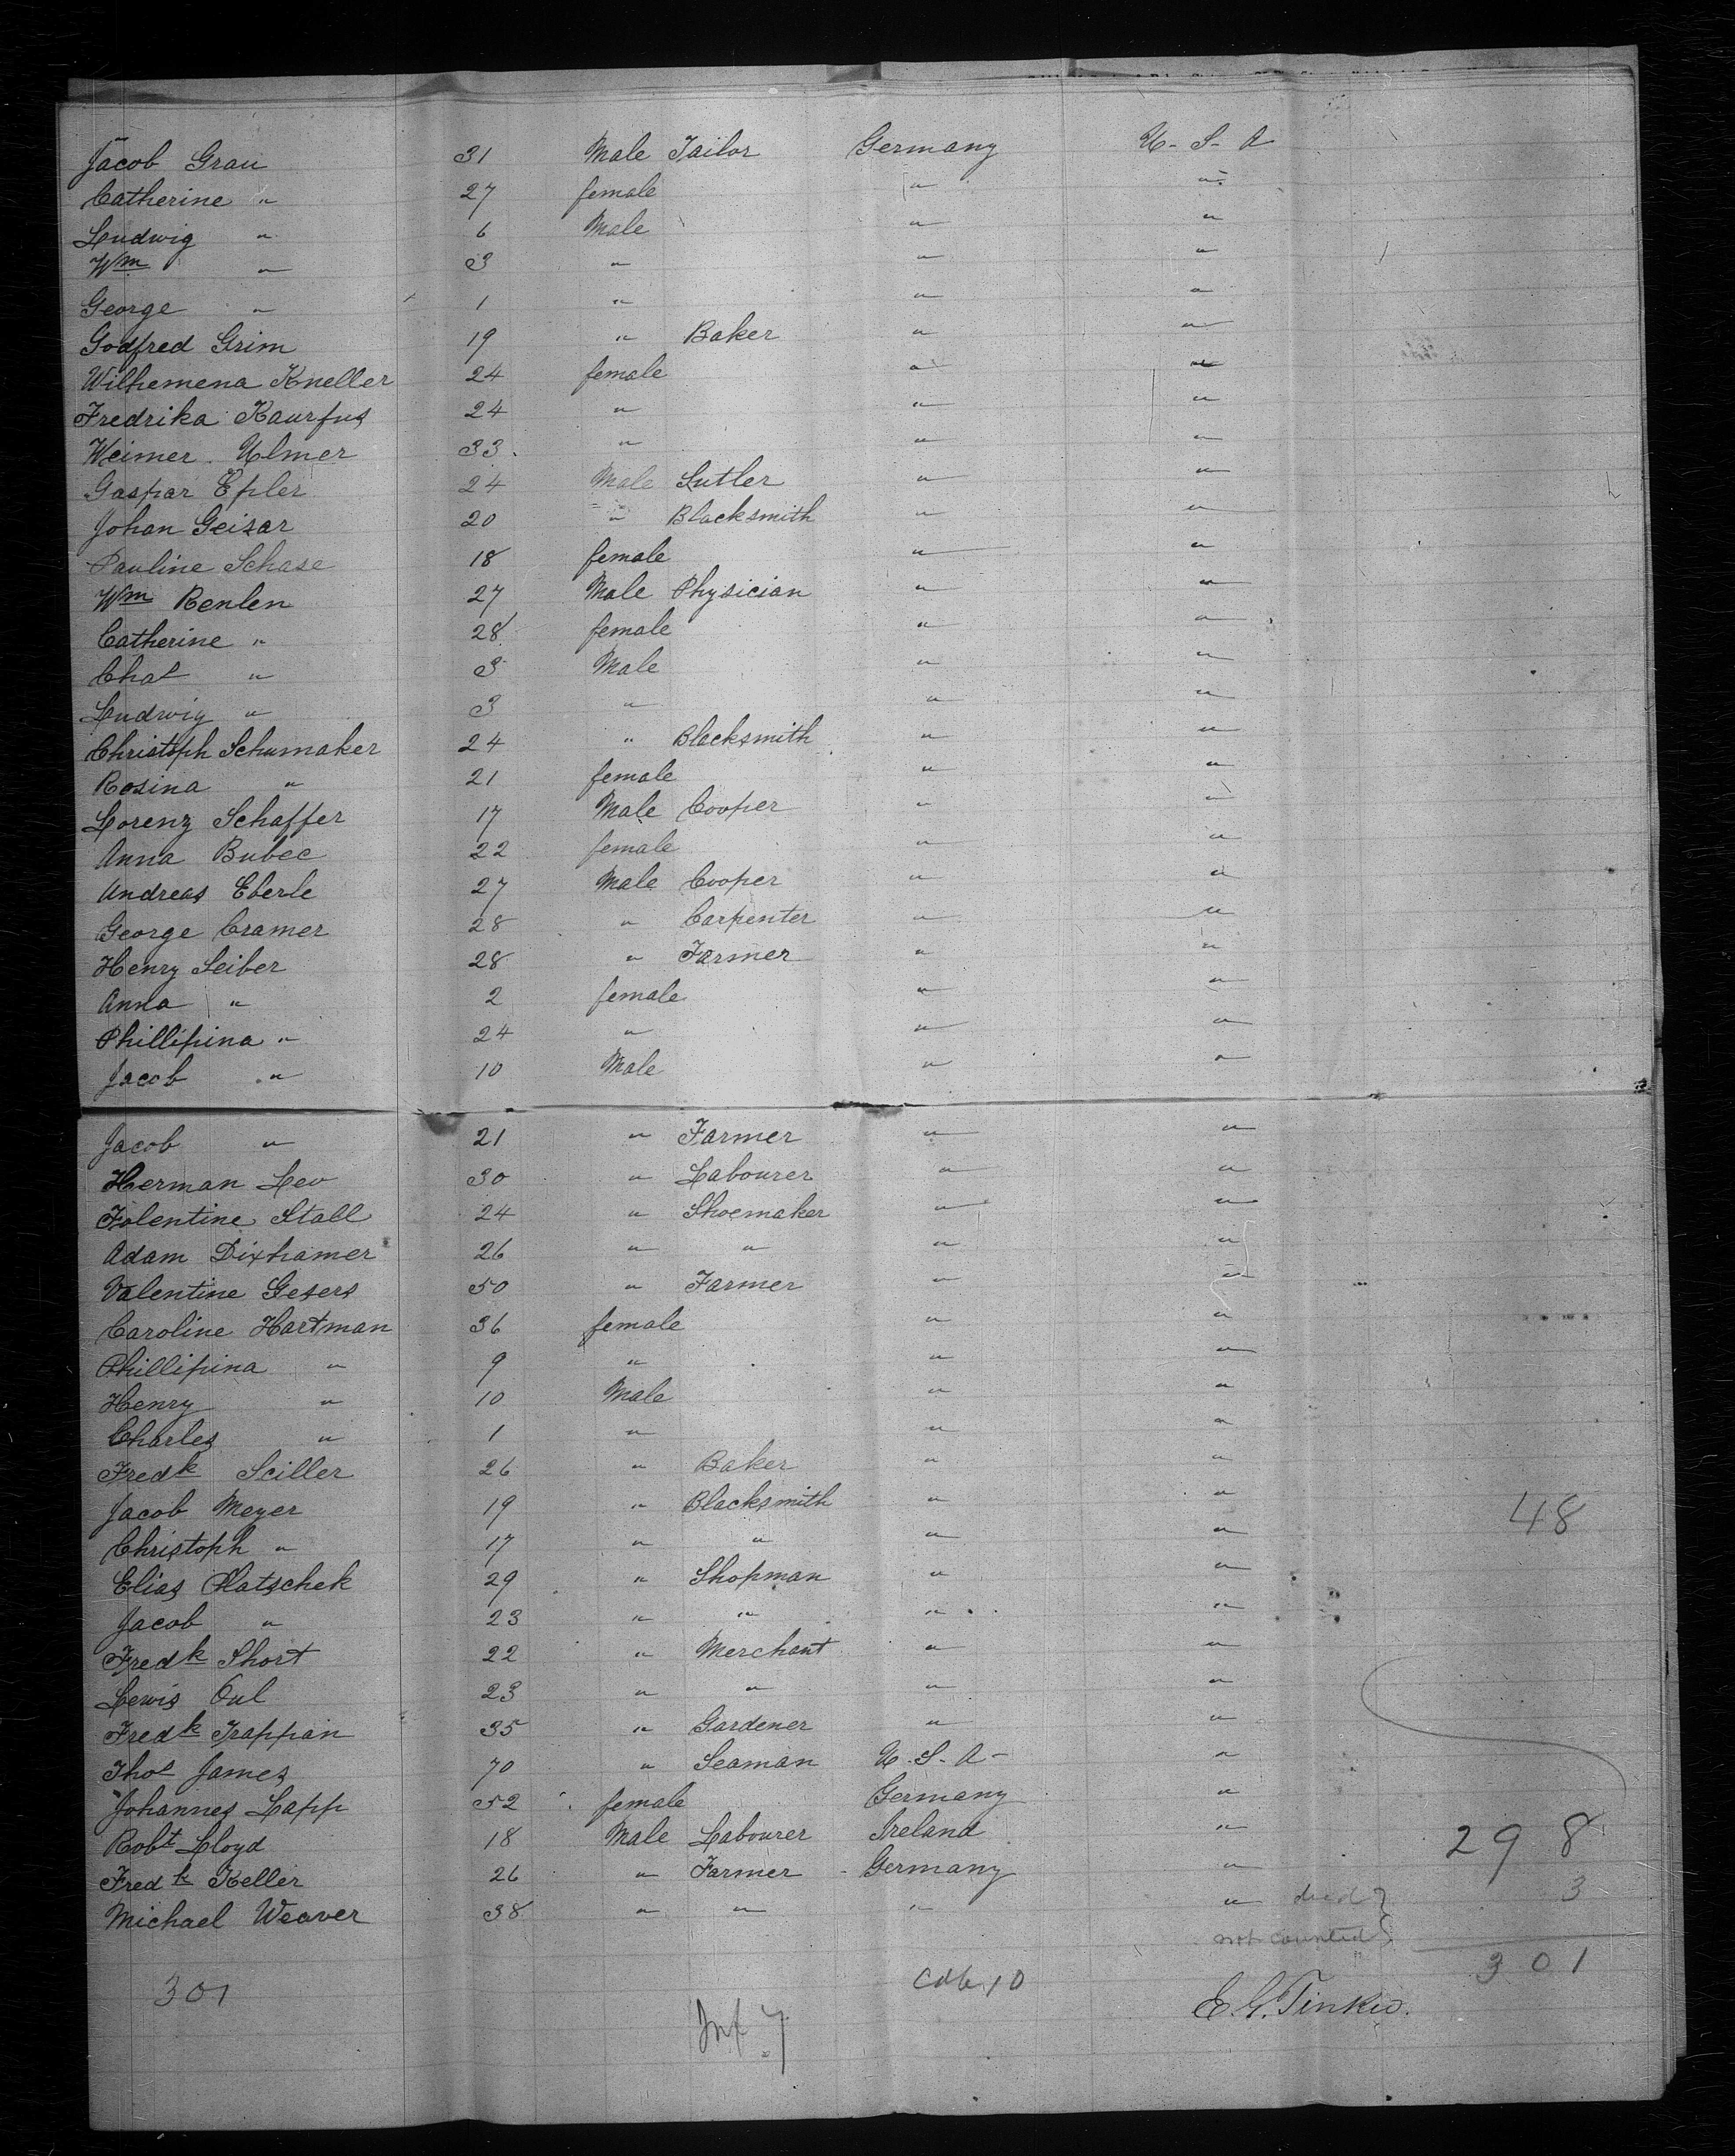 Jacob Grau 31 Male Tailor Germany U-S-A
Catherine " 27 female " "
Ludwig " 6 Male " "
Wm " 3 " " "
George " 1 " " "
Godfred Grim 19 " Baker " "
Wilhemena Kneller 24 female " "
Fredrika Kaurfus 24 " " "
Weimer Ulmer 33 " " "
Gaspar Epler 24 Male Sutler " "
Johan Geisar 20 " Blacksmith " "
Pauline Schase 18 female " "
Wm Renlen 27 Male Physician " "
Catherine " 28 female " "
Chas " 3 Male " "
Ludwig " 3 " " "
Christoph Schumaker 24 " Blacksmith " "
Rosina " 21 female " "
Lorenz Schaffer 17 Male Cooper " "
Anna Bubec 22 female " "
Andreas Eberle 27 Male Cooper " "
George Cramer 28 " Carpenter " "
Henry Seiber 28 " Farmer " "
Anna " 2 female " "
Phillipina " 24 " " "
Jacob " 10 Male " "
Jacob " 21 " Farmer " "
Herman Lev 30 " Labourer " "
Folentine Stall 24 " Shoemaker " "
Adam Dixhamer 26 " " " "
Valentine Gesers 50 " Farmer " "
Caroline Hartman 36 female " "
Phillipina " 9 " " "
Henry " 10 Male " "
Charles " 1 " " "
Fredk Sciller 26 " Baker " "
Jacob Meyer 19 " Blacksmith " " 48
Christoph " 17 " " " "
Elias Platschek 29 " Shopman " "
Jacob " 23 " " " "
Fredk Short 22 " Merchant " "
Lewis Oul 23 " " " "
Fredk Trappan 35 " Gardener " "
Thos James 70 " Seaman U-S-A- "
Johannes Lapp 52 female Germany "
Robt Lloyd 18 Male Labourer Ireland " 298
Fredk Keller 26 " Farmer - Germany "
Michael Weaver 38 " " " " died } 3
not counted }
301 301
E. G. Tinker.
Inf 7